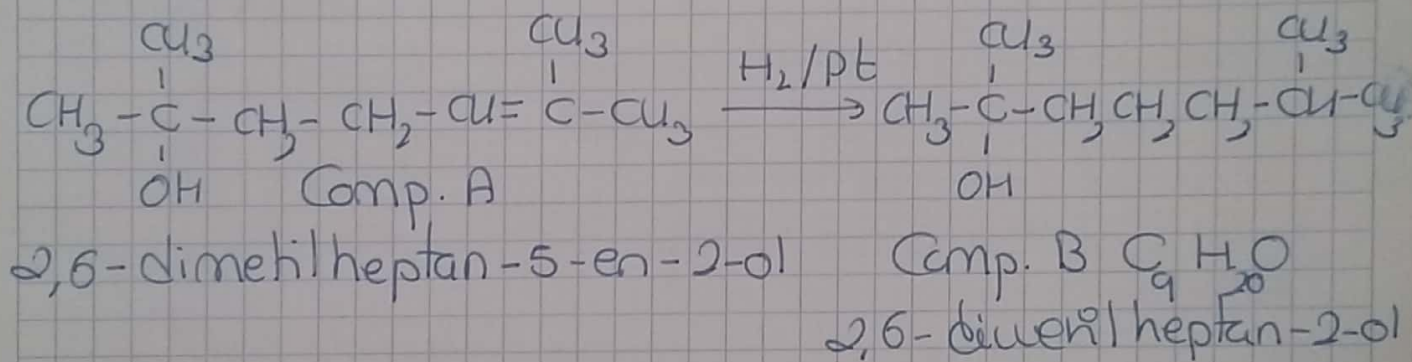 CH3 CH3 CH3 CH3
CH3-C-CH2-CH2-CH=C-CH3 H2/Pt → CH3-C-CH2CH2CH2-CH-CH3
OH Comp. A OH
2,6-dimetilheptan-5-en-2-ol Comp. B C9H20O
2,6-dimetilheptan-2-ol